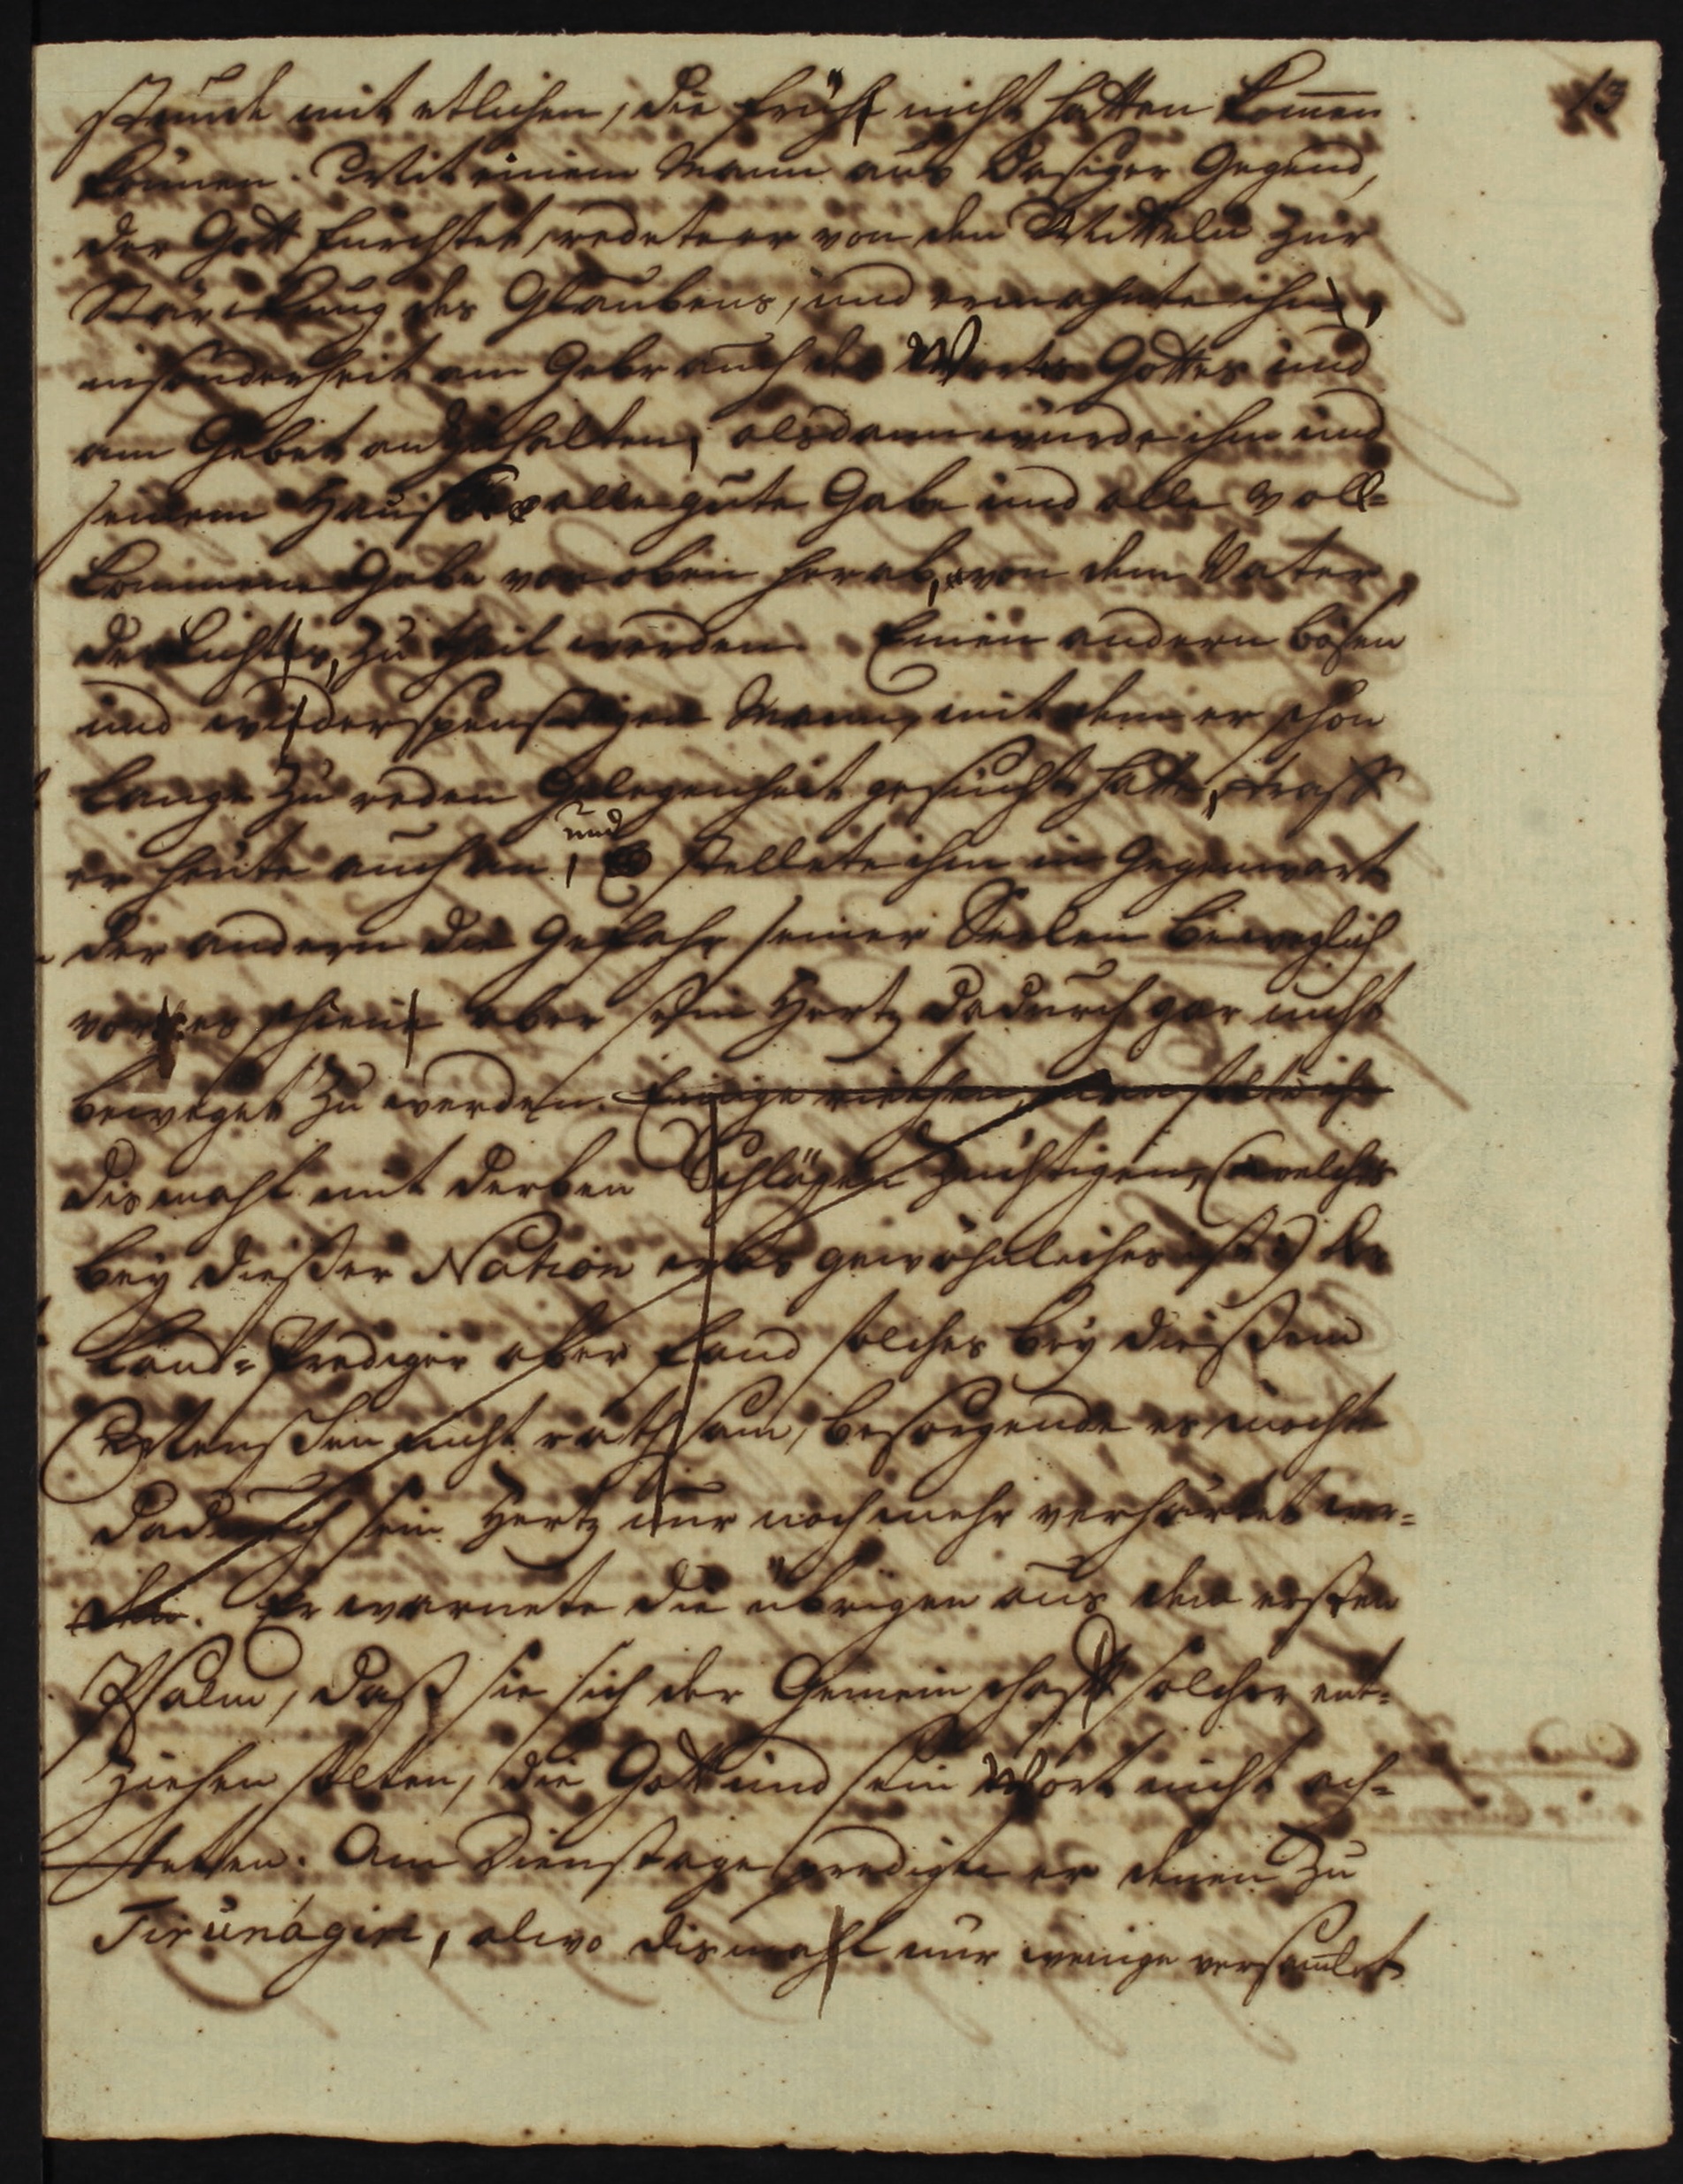 13
stunde mit etlichen, die früh nicht hatten kom̅en
können. Mit einem Mann aus dasiger Gegend,
der Gott furchtet, redete er von den Mitteln zur
Stärckung des Glaubens, und ermahnte ihn,
insonderheit am Gebrauch des Wortes Gottes und
am Gebet anzuhalten, alsdann würde ihm und
seinem Hause alle gute Gabe und alle voll=
kommene Gabe von oben herab, von dem Vater
des Lichts, zu theil werden. Einen andern bösen
und widerspenstigen Mann, mit dem er schon
lange zu reden Gelegenheit gesucht hatte, traff
er heute auch an, und stellete ihm in Gegenwart
der andern die Gefahr seiner Seelen beweglich
vor, es schien aber sein Hertz dadurch gar nicht
beweget zu werden. Einige riethen, man solte ihn
dismahl mit derben Schlägen züchtigen, (welches
bey dießer Nation etwas gewöhnliches ist) Der
Land=Prediger aber fand solches bey dießem
Menschen nicht rathsam, besorgende es möchte
dadurch sein Hertz nur noch mehr verhärtet wer=
den. Er warnete die übrigen aus dem ersten
Psalm, daß sie sich der Gemeinschafft solcher ent=
ziehen solten, die Gott und sein Wort nicht ach=
teten. Am Dienstage predigte er denen zu
Tirunágiri, alwo dismahl nur wenige versam̅let